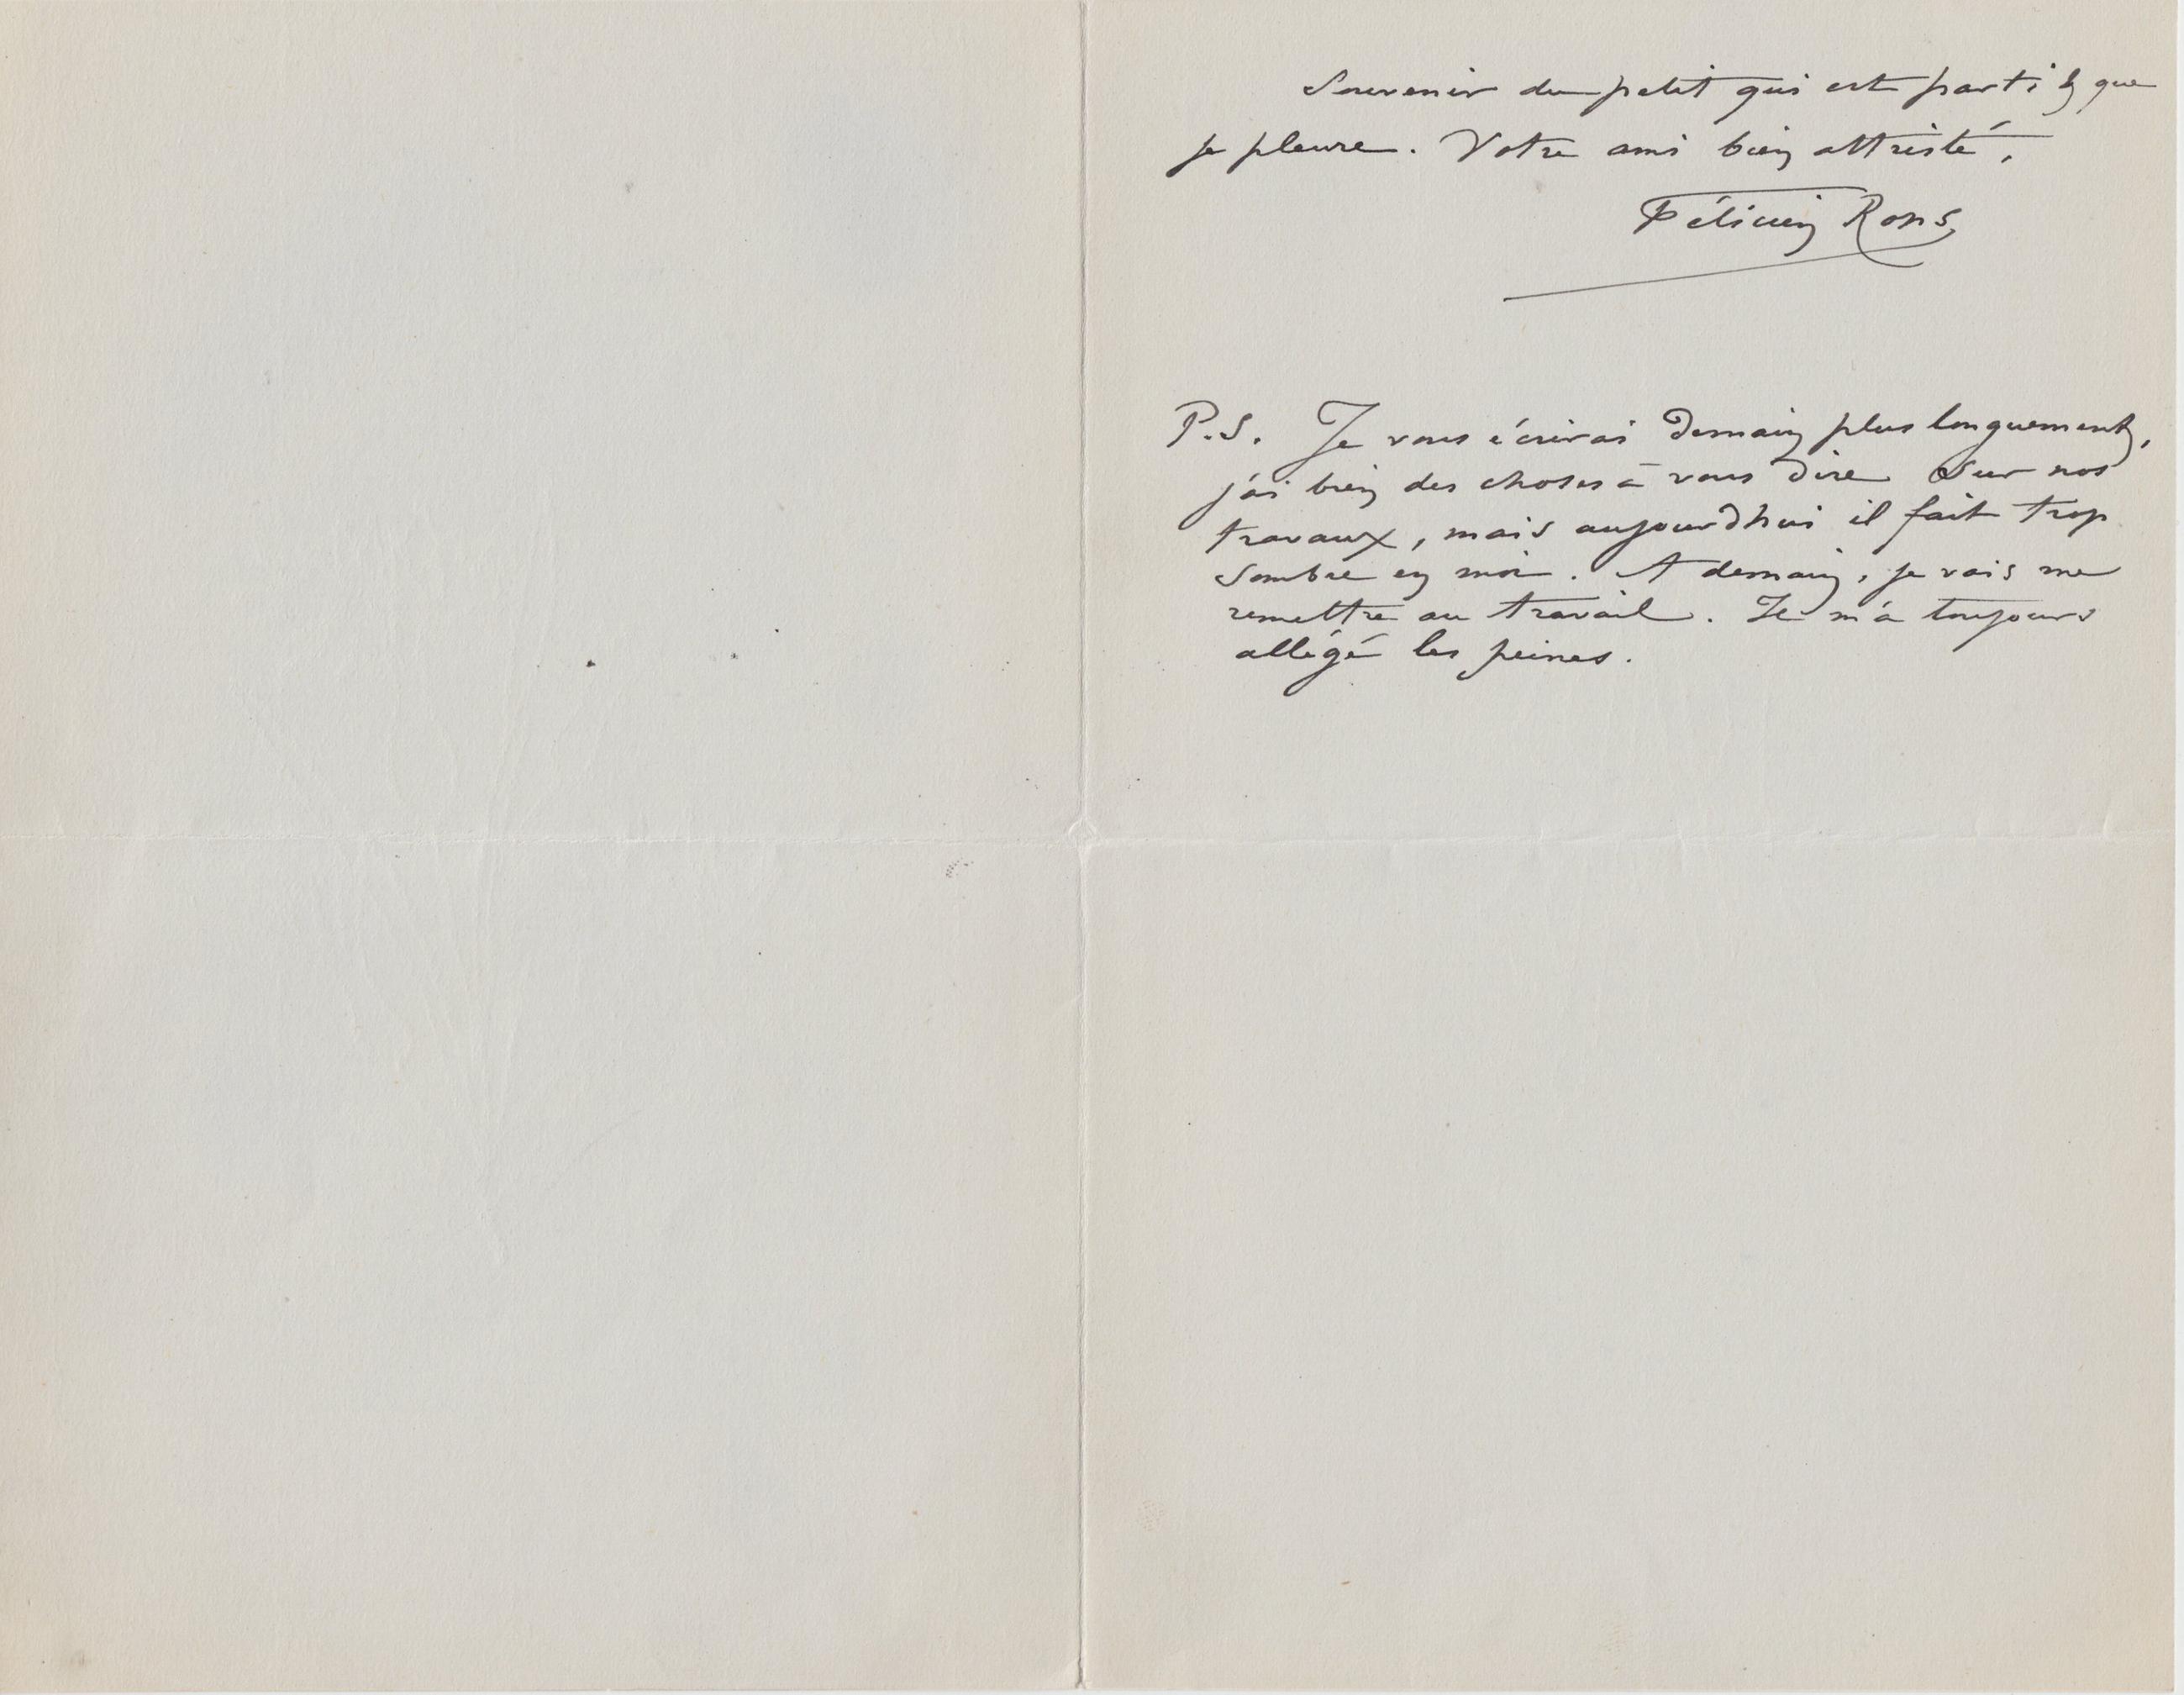 Souvenir du petit qui est parti & que
je pleure. Votre ami bien attristé,
Félicien Rops
P.S. Je vous écrirai demain plus longuement,
j'ai bien des choses à vous dire sur nos
travaux, mais aujourd'hui il fait trop
sombre en moi. A demain, je vais me
remettre au travail. Il m'a toujours
allégé les peines.